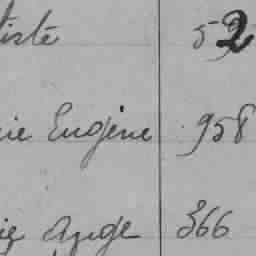 tiste 592
ie Eugène 958
ie Ange 366